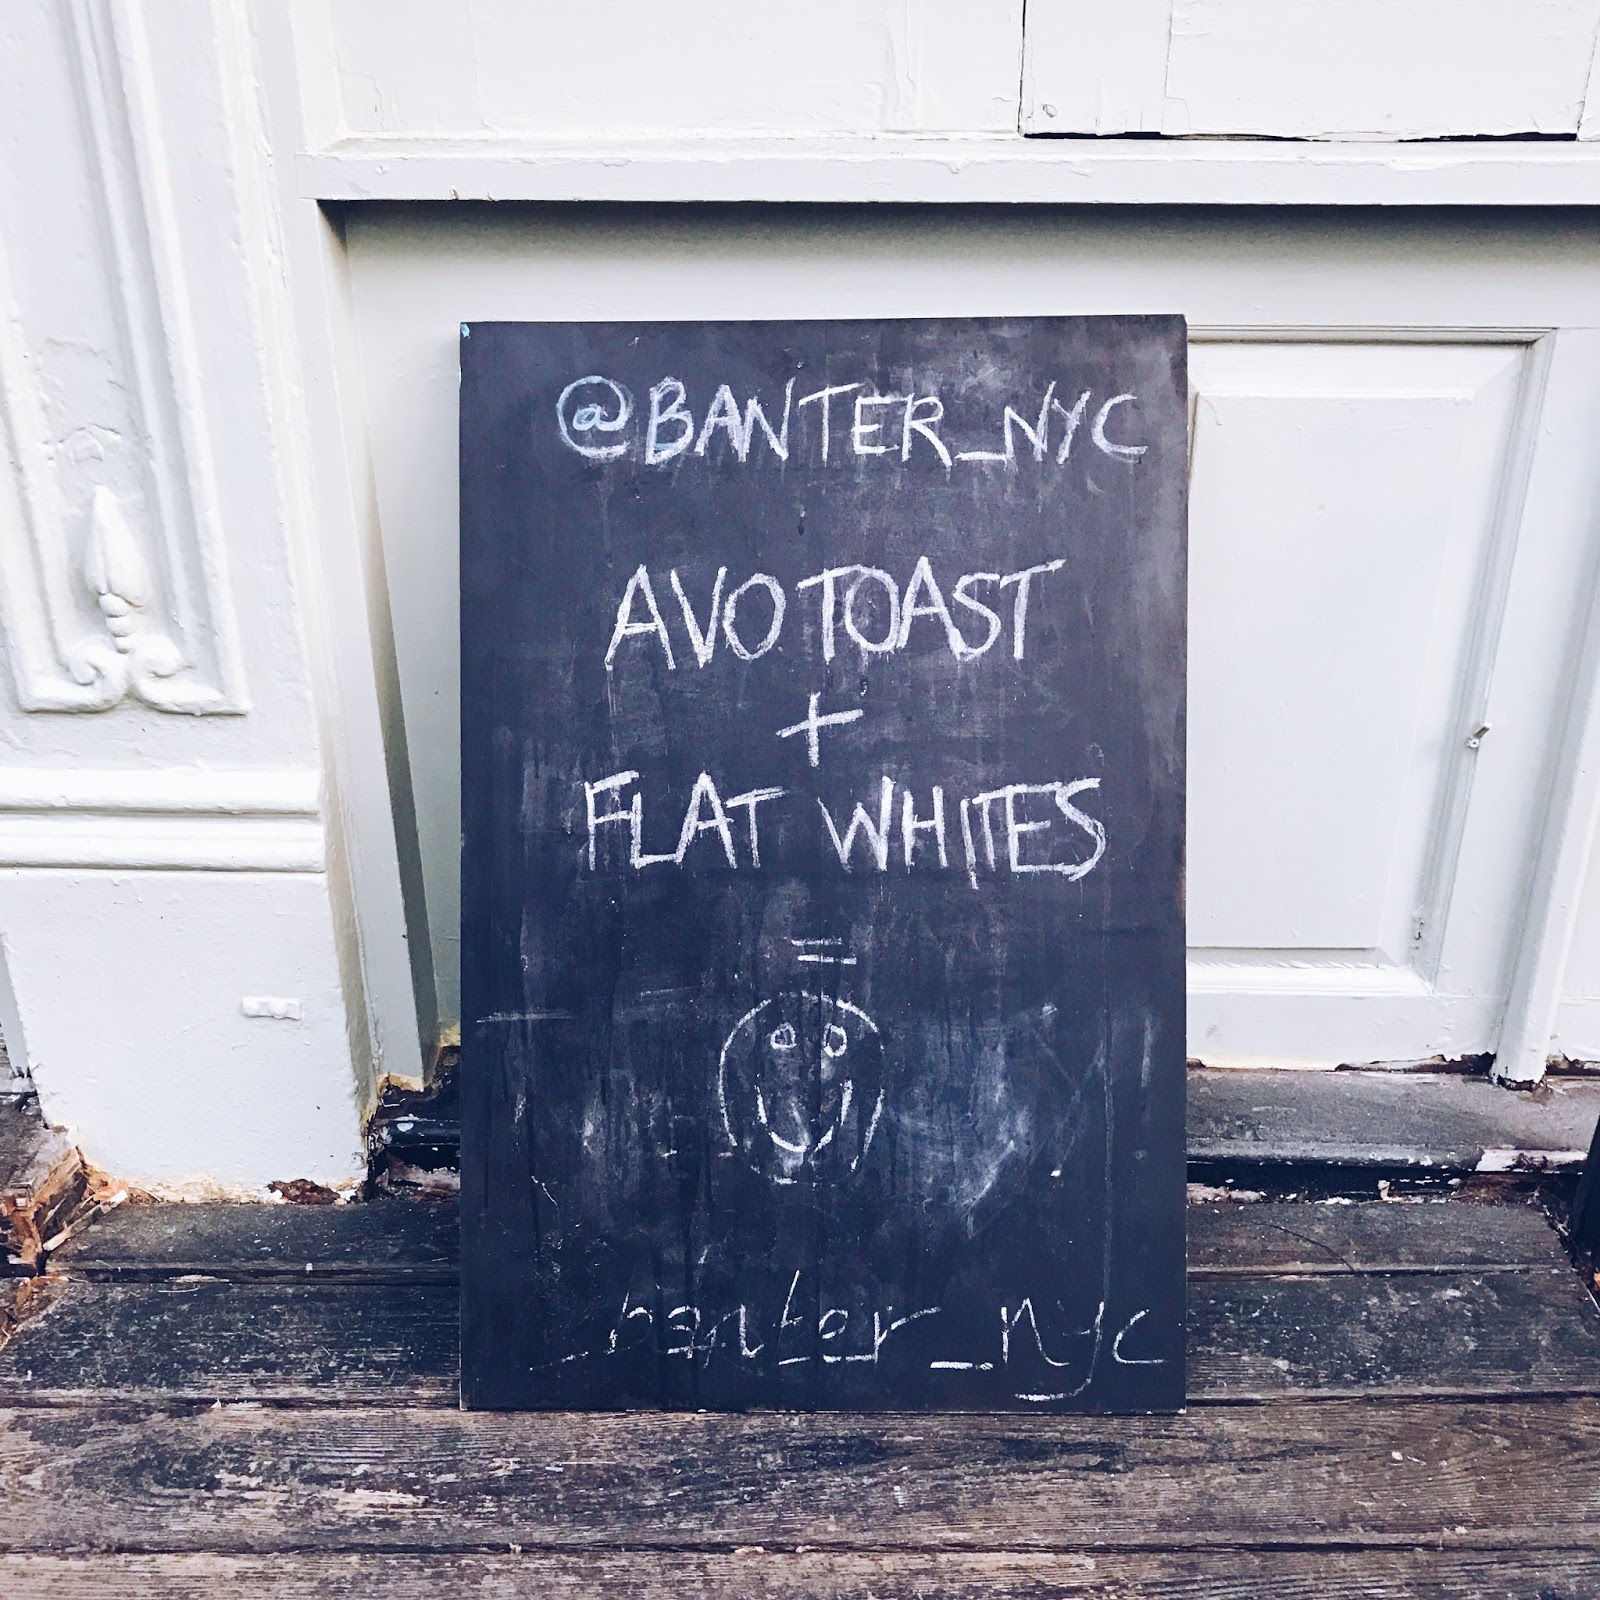 @BANTER_NYC
AVO TOAST
+
FLAT WHITES
=
banter_nyc